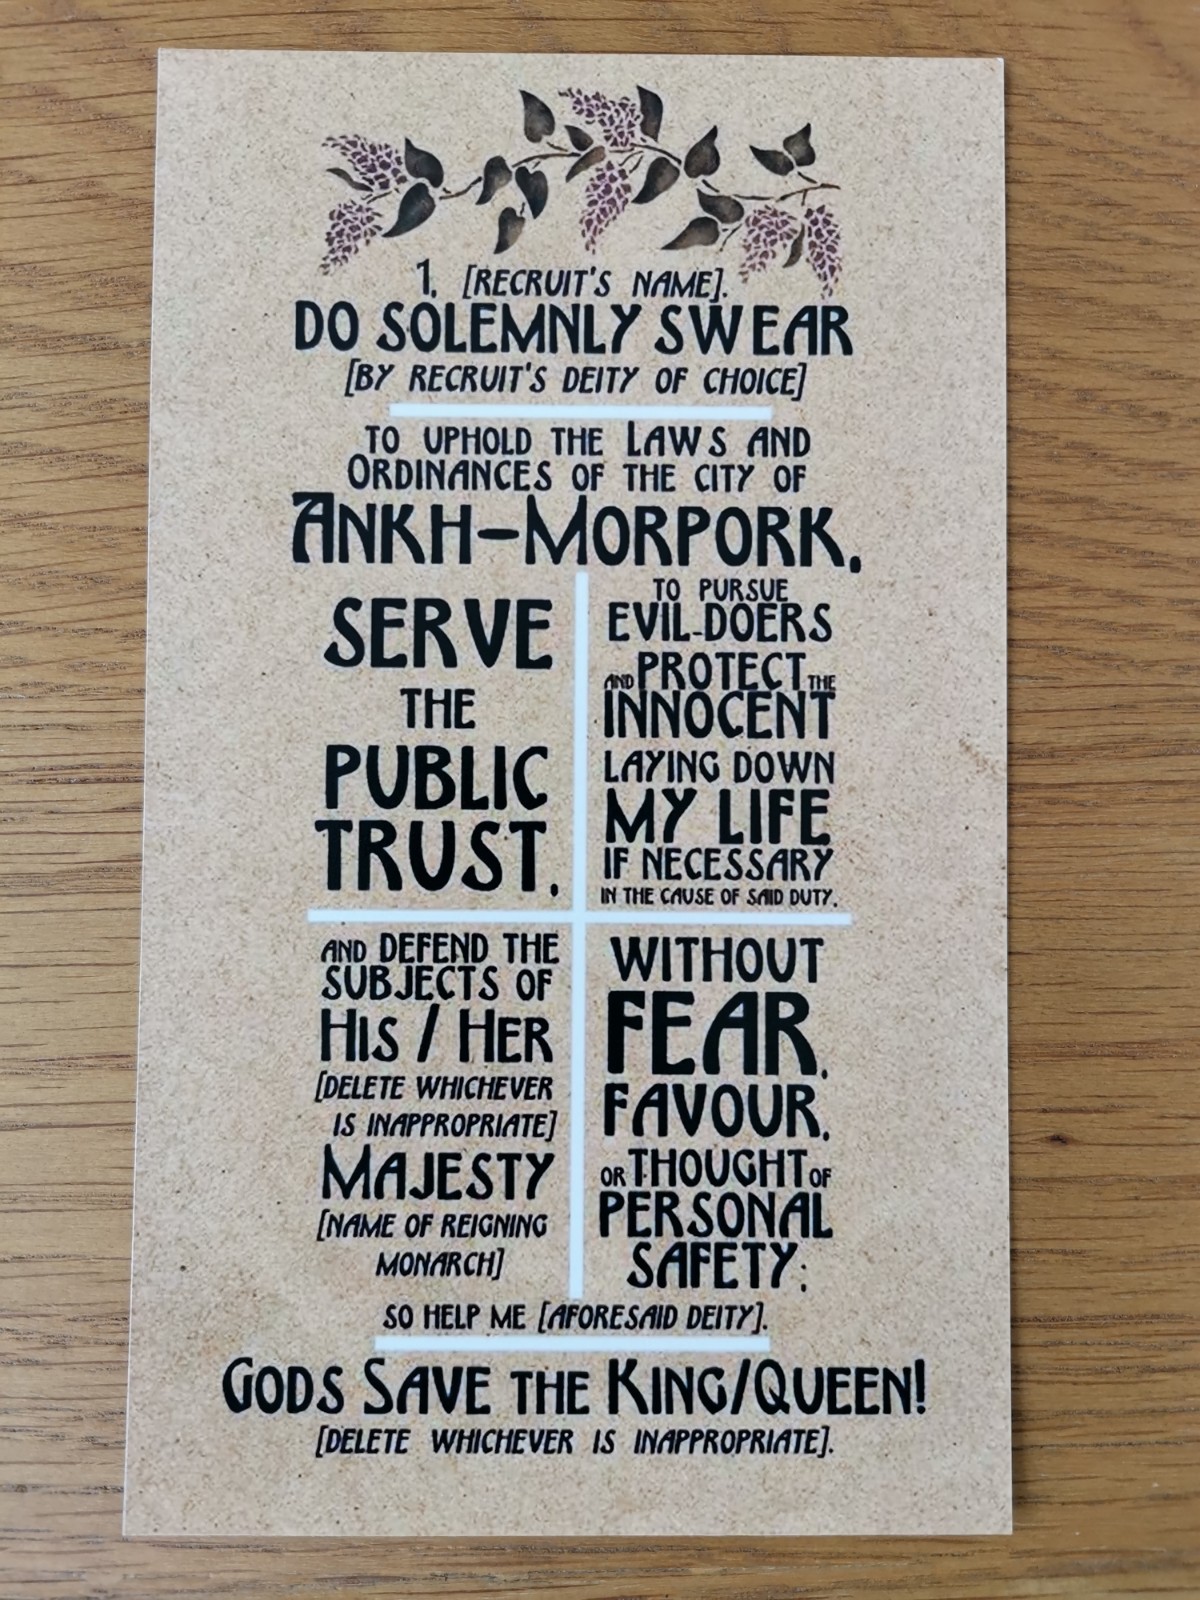 1, [RECRUIT'S NAME].
DO SOLEMNLY SWEAR
[BY RECRUIT'S DEITY OF CHOICE]
TO UPHOLD THE LAWS AND
ORDINANCES OF THE CITY OF
ANKH-MORPORK,
SERVE
THE
PUBLIC
TRUST,
TO PURSUE
EVIL-DOERS
AND PROTECT THE
INNOCENT
LAYING DOWN
MY LIFE
IF NECESSARY
IN THE CAUSE OF SAID DUTY,
AND DEFEND THE
SUBJECTS OF
HIS / HER
[DELETE WHICHEVER
IS INAPPROPRIATE]
MAJESTY
[NAME OF REIGNING
MONARCH]
WITHOUT
FEAR,
FAVOUR,
OR THOUGHT OF
PERSONAL
SAFETY;
SO HELP ME [AFORESAID DEITY].
GODS SAVE THE KING/QUEEN!
[DELETE WHICHEVER IS INAPPROPRIATE].